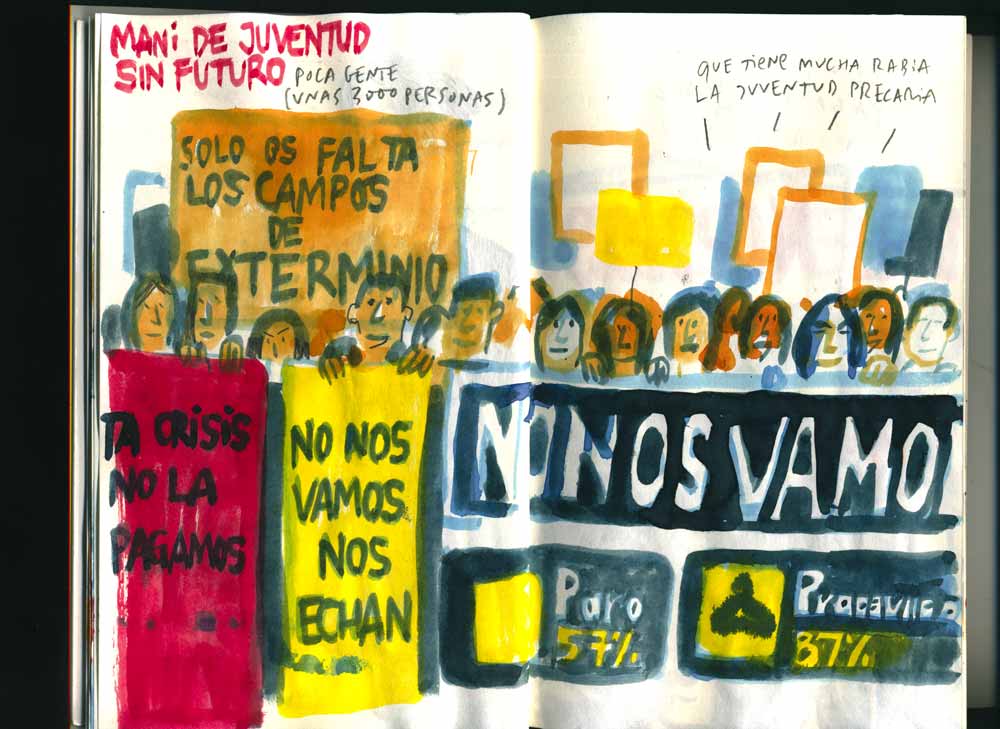 MANi DE JUVENTUD
SIN FUTURO
POCA GENTE
(UNAS 3000 PERSONAS)
QUE TIENE MUCHA RABIA
LA JUVENTUD PRECARIA
SOLO OS FALTA
LOS CAMPOS
DE
EXTERMINIO
TA CRISIS
NO LA
PAGAMOS
NO NOS
VAMOS
NOS
ECHAN
NO NOS VAMO
Paro
57%
37%